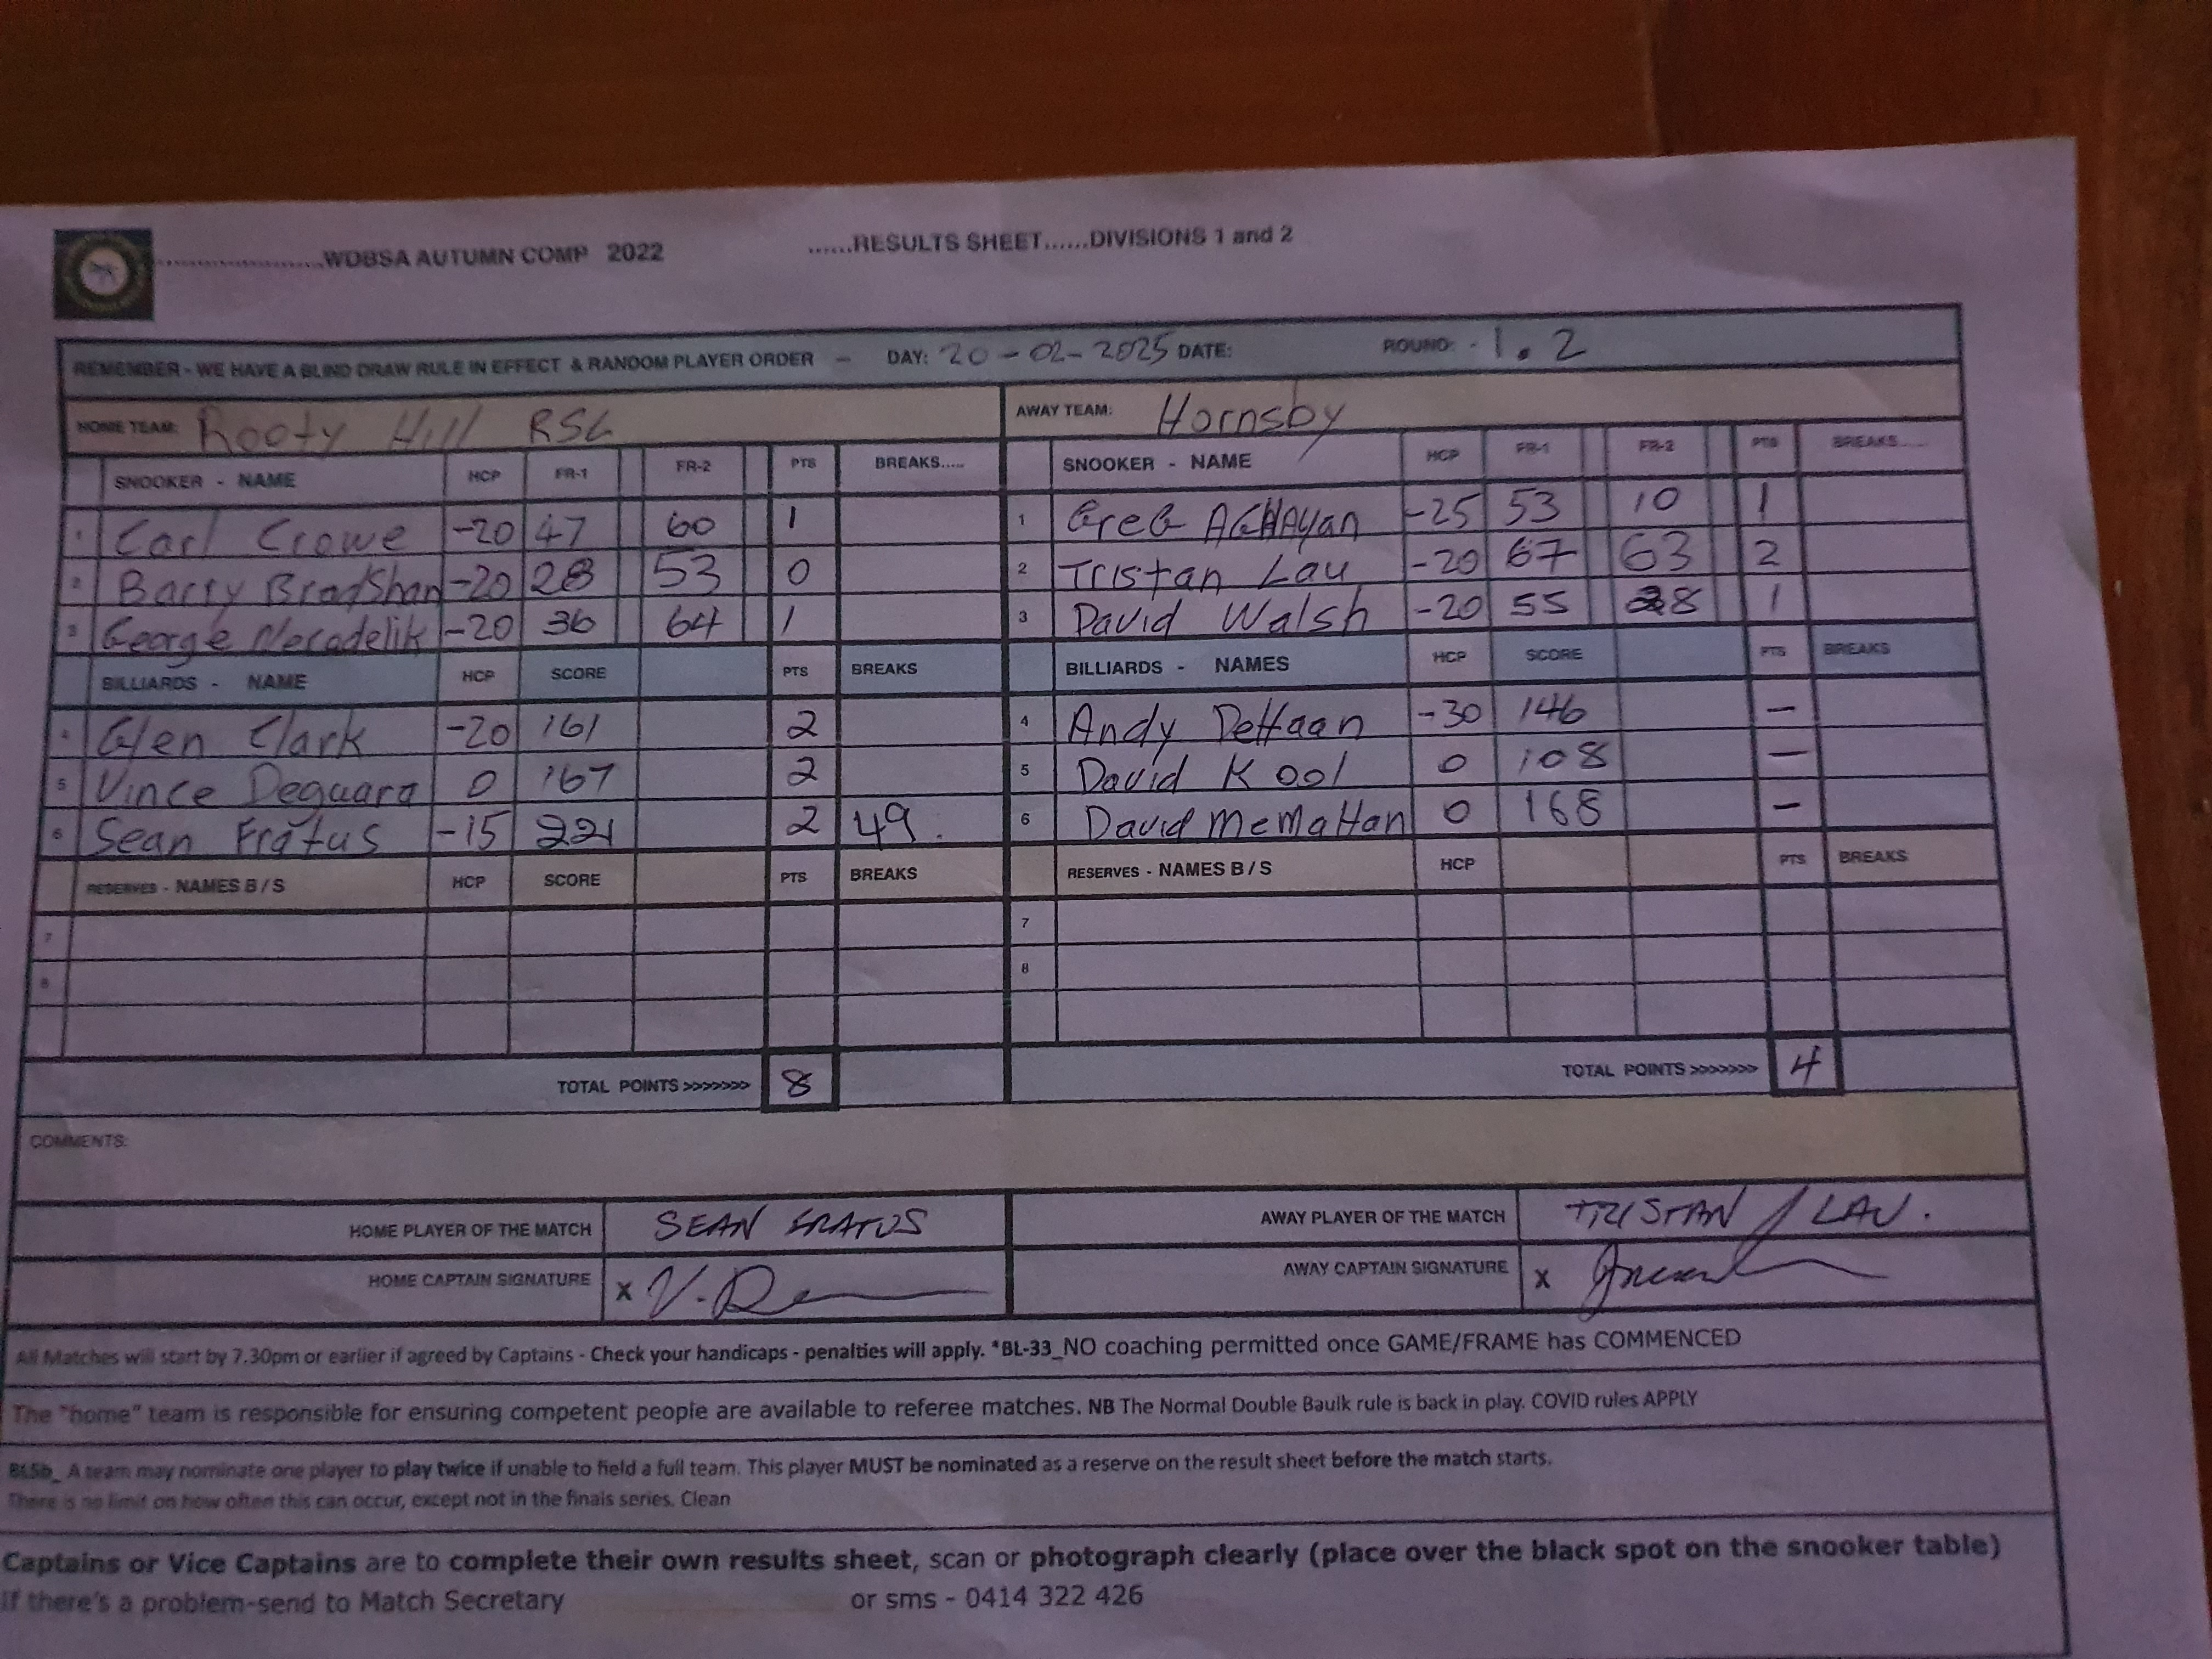 ......................WDBSA AUTUMN COMP 2022 ......RESULTS SHEET......DIVISIONS 1 and 2
REMEMBER - WE HAVE A BLIND DRAW RULE IN EFFECT & RANDOM PLAYER ORDER - DAY: 20-02-2025 DATE: ROUND: - 1.2
HOME TEAM: Rooty Hill RSL AWAY TEAM: Hornsby
SNOOKER - NAME HCP FR-1 FR-2 PTS BREAKS..... SNOOKER - NAME HCP FR-1 FR-2 PTS BREAKS.....
1 Carl Crowe -20 47 60 1 1 GreG AGHAyan -25 53 10 1
2 Barry Bradshaw -20 28 53 0 2 Tristan Lau -20 67 63 2
3 George -20 36 64 1 3 David Walsh -20 55 28 1
BILLIARDS - NAME HCP SCORE PTS BREAKS BILLIARDS - NAMES HCP SCORE PTS BREAKS
4 Glen Clark -20 161 2 4 Andy DeHaan -30 146 -
5 Vince Deguara 0 167 2 5 David Kool 0 108 -
6 Sean Fratus -15 221 2 49. 6 David McMaHan 0 168 -
RESERVES - NAMES B / S HCP SCORE PTS BREAKS RESERVES - NAMES B / S HCP PTS BREAKS
7 7
8 8
TOTAL POINTS >>>>>>> 8 TOTAL POINTS >>>>>>> 4
COMMENTS:
HOME PLAYER OF THE MATCH SEAN FRATUS AWAY PLAYER OF THE MATCH TRISTAN LAU.
HOME CAPTAIN SIGNATURE x AWAY CAPTAIN SIGNATURE x
All Matches will start by 7.30pm or earlier if agreed by Captains - Check your handicaps - penalties will apply. *BL-33_NO coaching permitted once GAME/FRAME has COMMENCED
The "home" team is responsible for ensuring competent people are available to referee matches. NB The Normal Double Baulk rule is back in play. COVID rules APPLY
BL5b_ A team may nominate one player to play twice if unable to field a full team. This player MUST be nominated as a reserve on the result sheet before the match starts.
There is no limit on how often this can occur, except not in the finals series. Clean
Captains or Vice Captains are to complete their own results sheet, scan or photograph clearly (place over the black spot on the snooker table)
If there's a problem-send to Match Secretary or sms - 0414 322 426